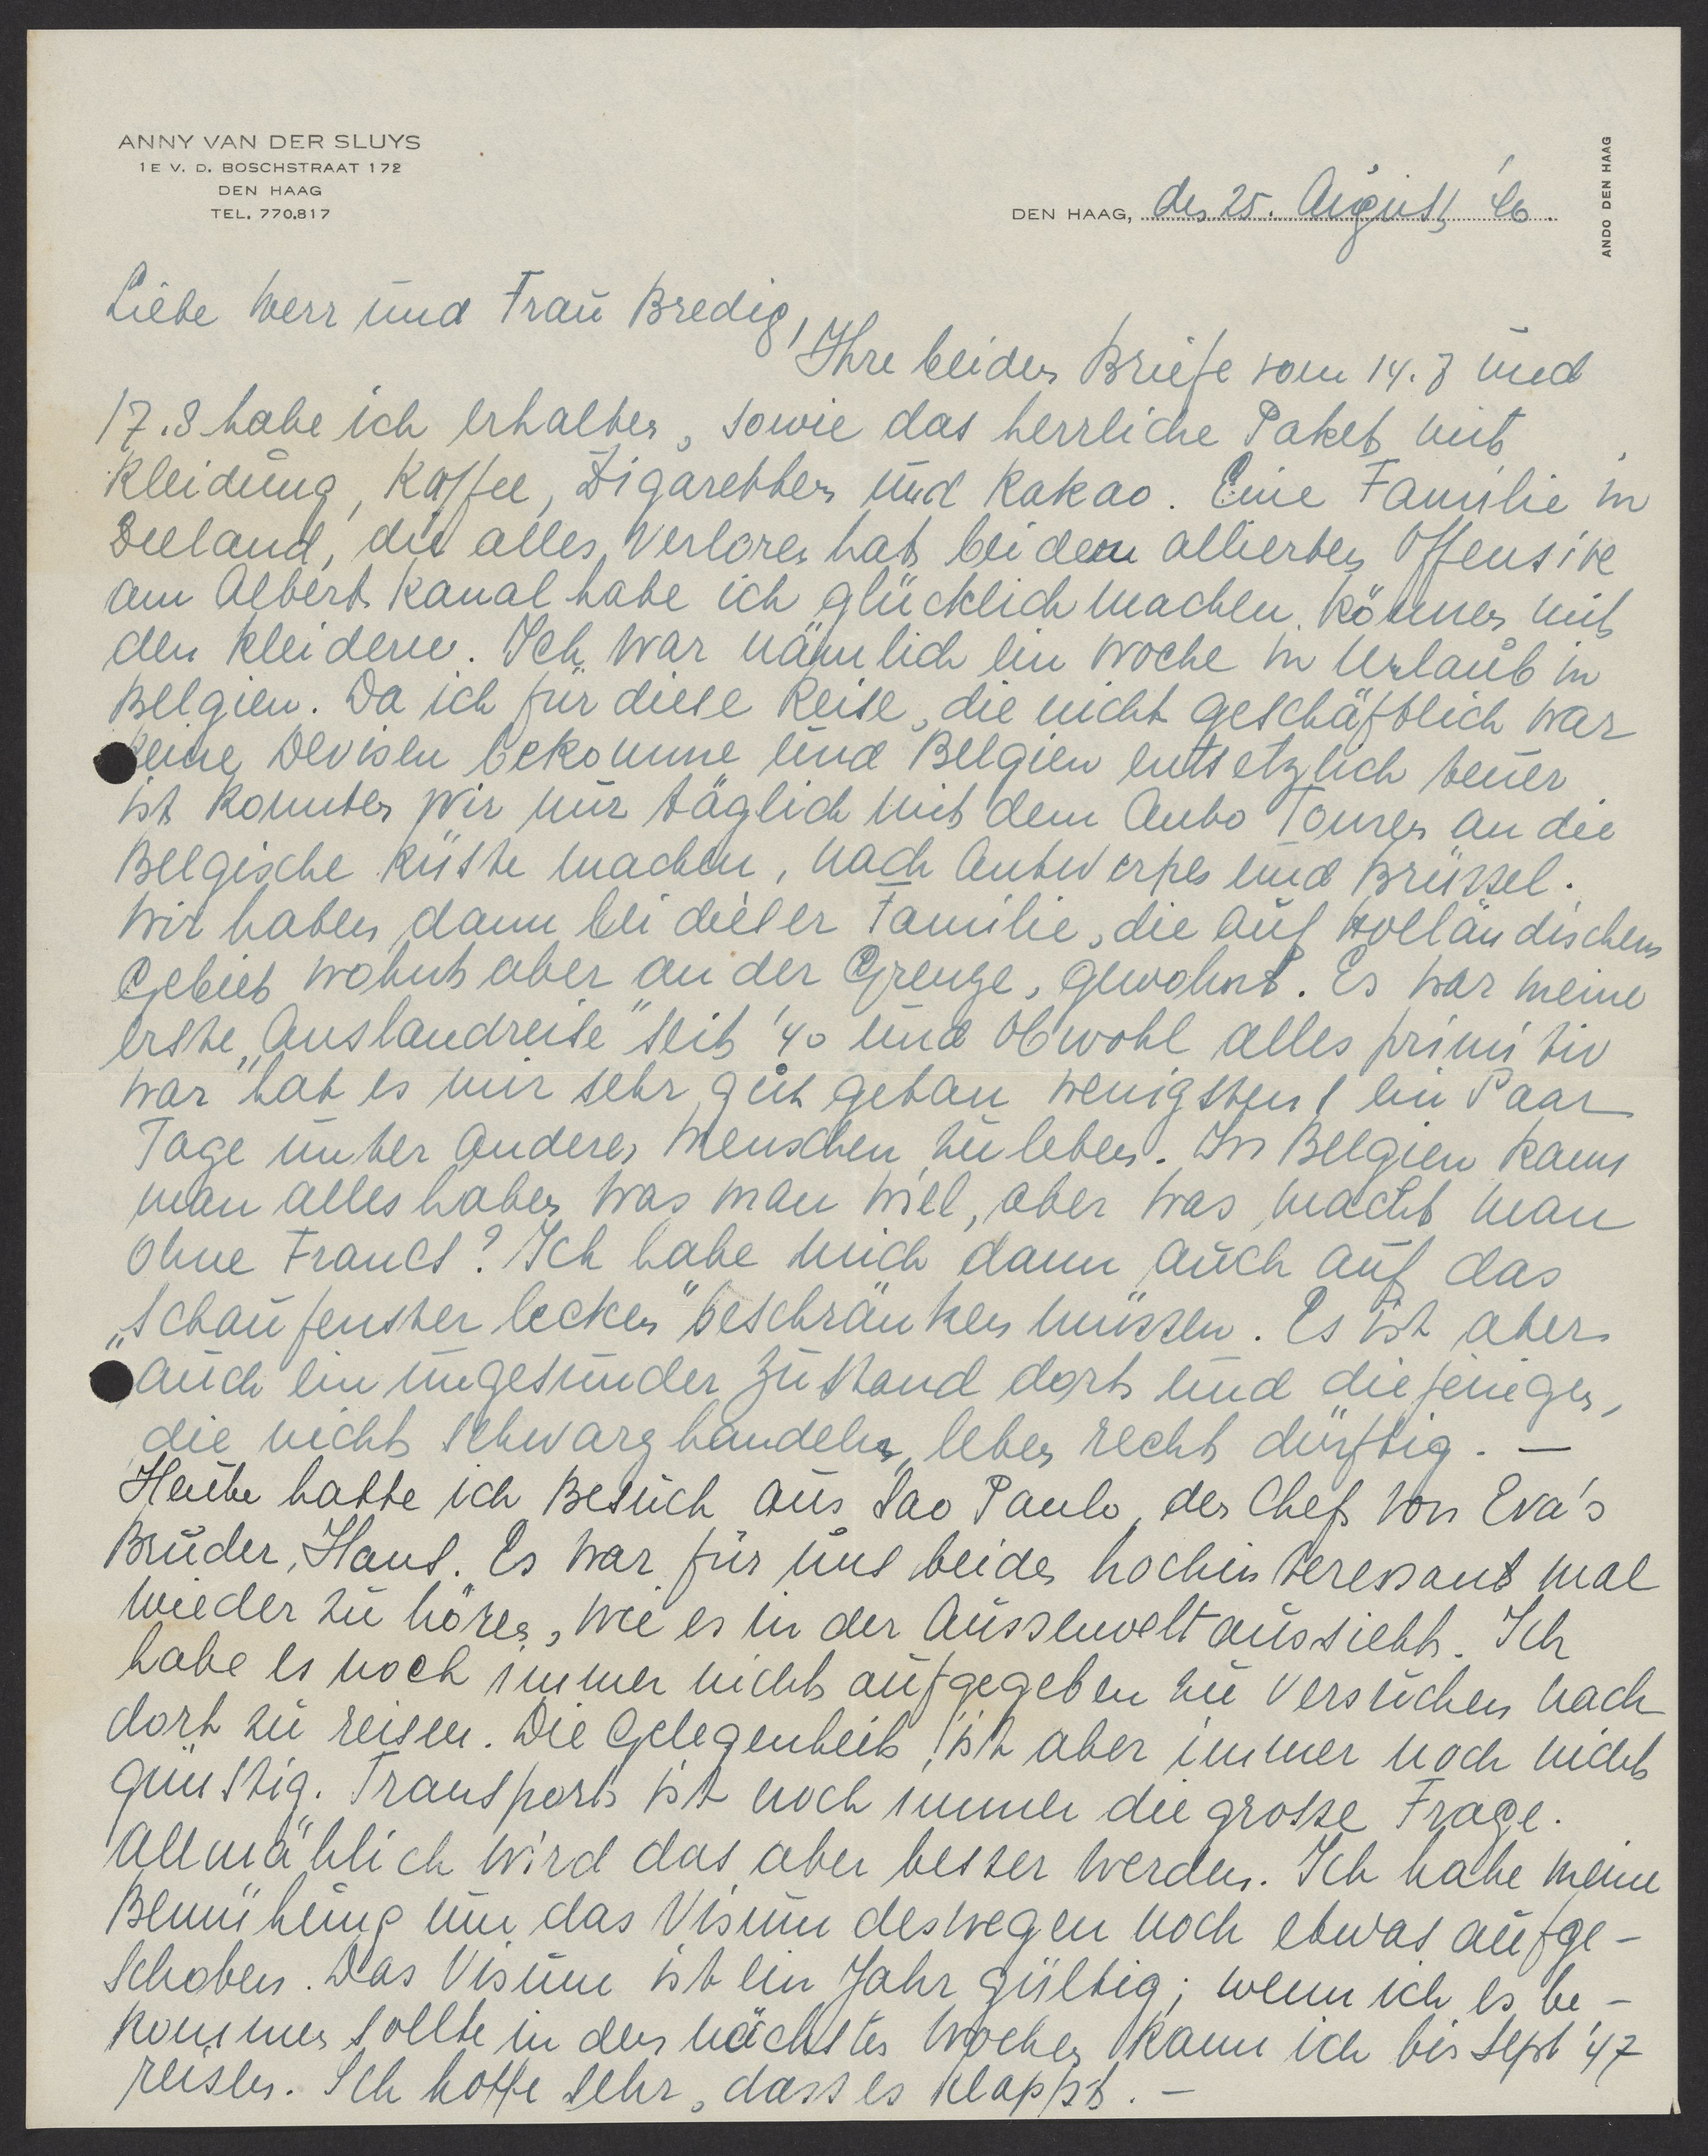 ANNY VAN DER SLUYS
1E V. D. BOSCHSTRAAT 172
DEN HAAG
TEL. 770.817
DEN HAAG, den 25. August '46.
ANDO DEN HAAG
Liebe Herr und Frau Bredig,
Ihre beiden Briefe vom 14. und
17.8 habe ich erhalten, sowie das herrliche Paket mit
Kleidung, Kaffee, Zigaretten und Kakao. Eine Familie in
Seeland, die alles verloren hat bei dem allierten Offensive
am Albert Kanal habe ich glücklich machen können mit
den Kleidern. Ich war nämlich ein Woche in Urlaub in
Belgien. Da ich für diese Reise, die nicht geschäftlich war
keine Devisen bekomme und Belgien entsetzlich teuer
ist konnten wir nur täglich mit dem Auto Touren an die
Belgische Küste machen, nach Antwerpen und Brüssel.
Wir haben dann bei dieser Familie, die auf Holländischem
Gebiet wohnt aber an der Grenze, gewohnt. Es war meine
erste „Auslandreise" seit '40 und obwohl alles primitiv
war hat es mir sehr gut getan wenigstens ein Paar
Tage unter anderen Menschen zu leben. In Belgien kann
man alles haben was man wiel, aber was macht man
ohne Francs? Ich habe mich dann auch auf das
„Schaufenster lecken" beschränken müssen. Es ist aber
auch ein ungesunder Zustand dort und diejenigen,
die nicht schwarz handeln, leben recht dürftig. —
Heute hatte ich Besuch aus Sao Paulo, der Chef von Eva's
Bruder, Hans. Es war für uns beide hochinteressant mal
wieder zu hören, wie es in der Aussenwelt aussieht. Ich
habe es noch immer nicht aufgegeben zu versuchen nach
dort zu reisen. Die Gelegenheit ist aber immer noch nicht
günstig. Transport ist noch immer die grosse Frage.
Allmählich wird das aber besser werden. Ich habe meine
Bemühung um das Visum deswegen noch etwas aufge-
schoben. Das Visum ist ein Jahr gültig; wenn ich es be-
kommen sollte in den nächsten Wochen kann ich bis Sept '47
reisen. Ich hoffe sehr, dass es klappt. —